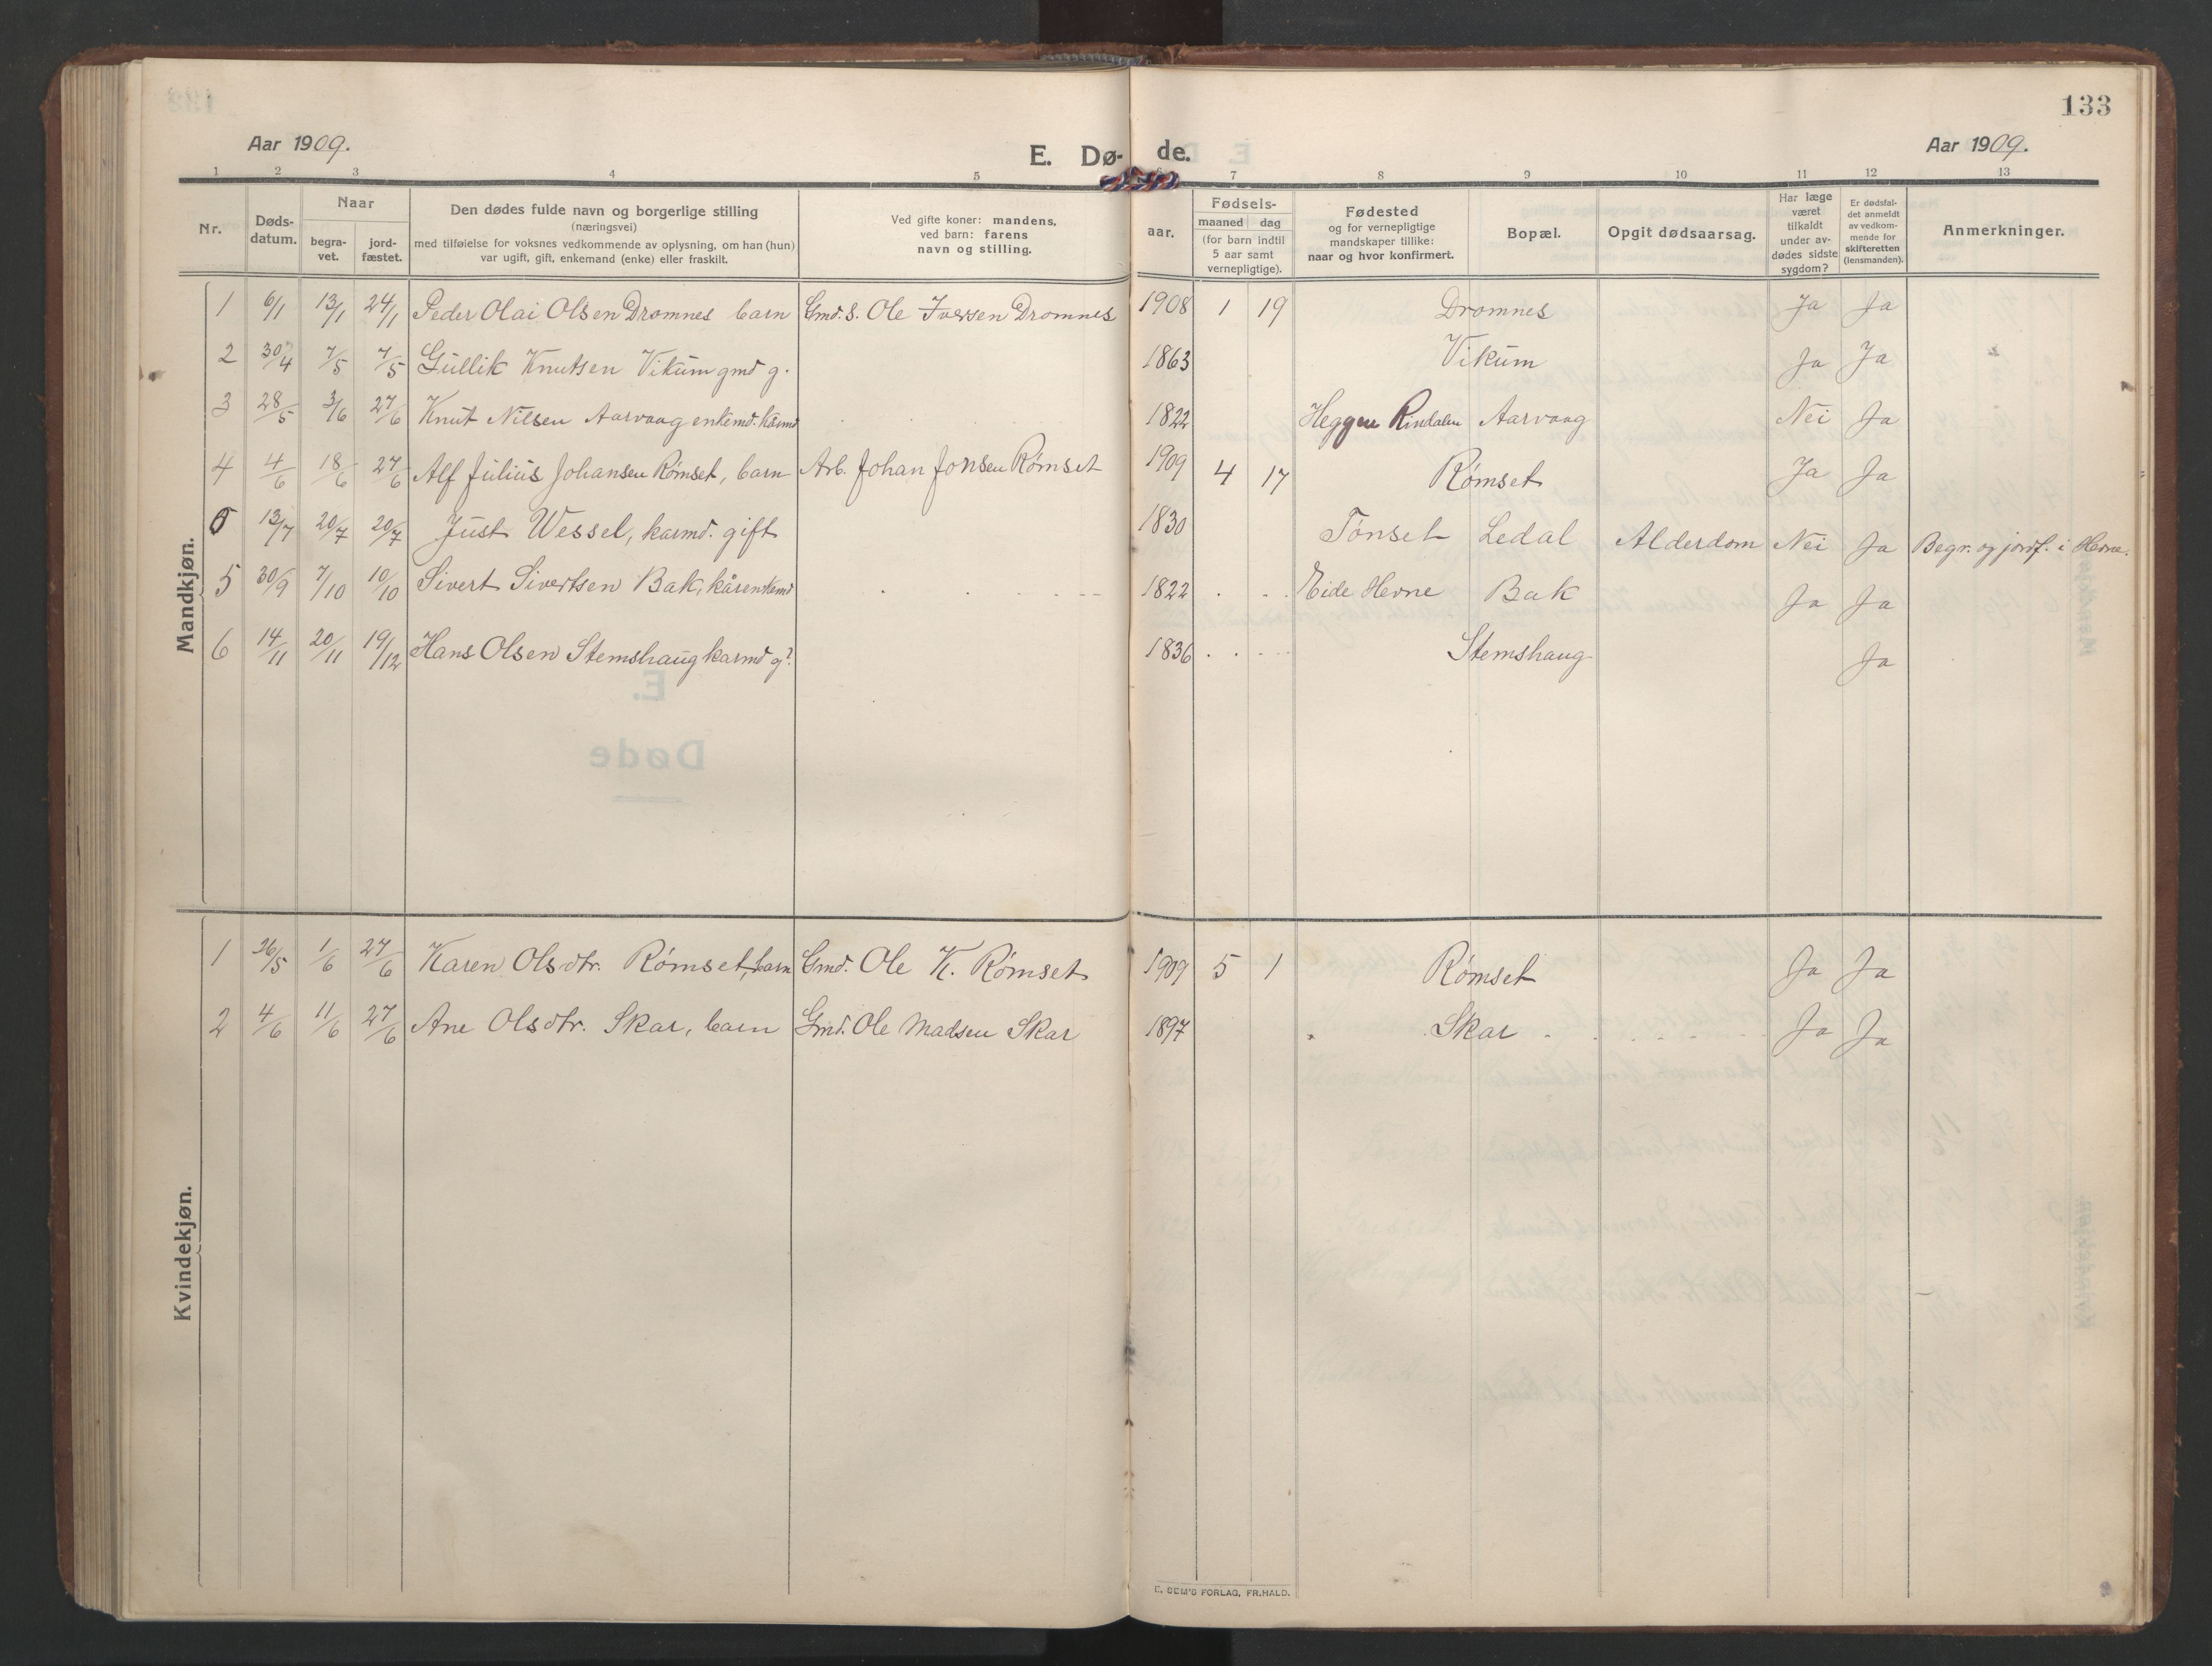 133
Aar 1909.
E. Dø- de.
Aar 1909.
1 2 3 4 5 6 7 8 9 10 11 12 13
Nr.
Døds-
datum.
Naar
begra-
vet.
jord-
fæstet.
Den dødes fulde navn og borgerlige stilling
(næringsvei)
med tilføielse for voksnes vedkommende av oplysning, om han (hun)
var ugift, gift, enkemand (enke) eller fraskilt.
Ved gifte koner: mandens,
ved barn: farens
navn og stilling.
Fødsels-
aar.
maaned dag
(for barn indtil
5 aar samt
vernepligtige).
Fødested
og for vernepligtige
mandskaper tillike:
naar og hvor konfirmert.
Bopæl.
Opgit dødsaarsag.
Har læge
været
tilkaldt
under av-
dødes sidste
sygdom?
Er dødsfal-
det anmeldt
av vedkom-
mende for
skifteretten
(lensmanden).
Anmerkninger.
Mandkjøn.
1 6/1 13/1 24/1 Peder Olai Olsen Dromnes barn Gmd. S. Ole Iversen Dromnes 1908 1 19 Dromnes Ja Ja
2 30/4 7/5 7/5 Gullik Knutsen Vikum gmd g. 1863 Vikum Ja Ja
3 28/5 3/6 27/6 Knut Nilsen Aarvaag enkemd. Kårmd 1822 Heggem Rindalen Aarvaag Nei Ja
4 4/6 18/6 27/6 Alf Julius Johansen Rømset, barn Arb. Johan Jonsen Rømset 1909 4 17 Rømset Ja Ja
0 13/7 20/7 20/7 Just Wessel, karmd. gift 1830 Tønset Ledal Alderdom Nei Ja Begr. og jordf. i Hevne.
5 30/9 7/10 10/10 Sivert Sivertsen Bak, kårenkemd 1822 Eide Hevne Bak Ja Ja
6 14/11 20/11 19/12 Hans Olsen Stemshaug karmd g? 1836 Stemshaug Ja
Kvindekjøn.
1 26/5 1/6 27/6 Karen Olsdtr. Rømset, barn Gmd. Ole K. Rømset 1909 5 1 Rømset Ja Ja
2 4/6 11/6 27/6 Ane Olsdtr. Skar, barn Gmd. Ole Madsen Skar 1897 Skar Ja Ja
E. SEM'S FORLAG, FR.HALD.